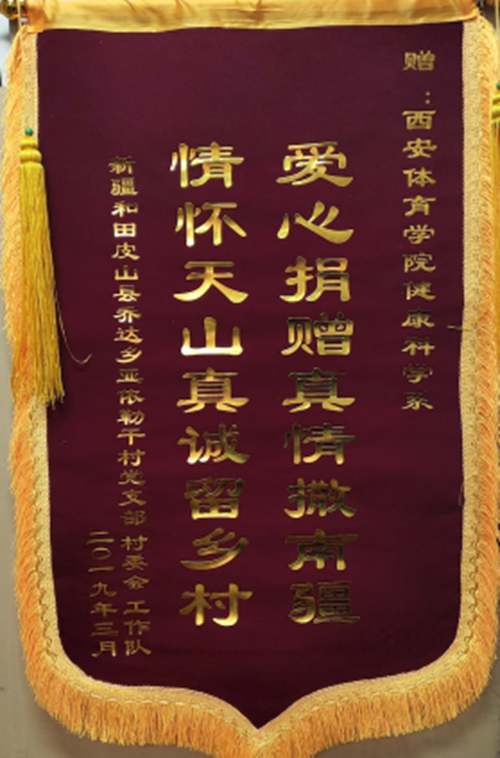 赠：西安体育学院健康科学系
爱心捐赠真情撒南疆
情怀天山真诚留乡村
新疆和田皮山县乔达乡亚依勒干村党支部 村委会 工作队
二〇一九年三月